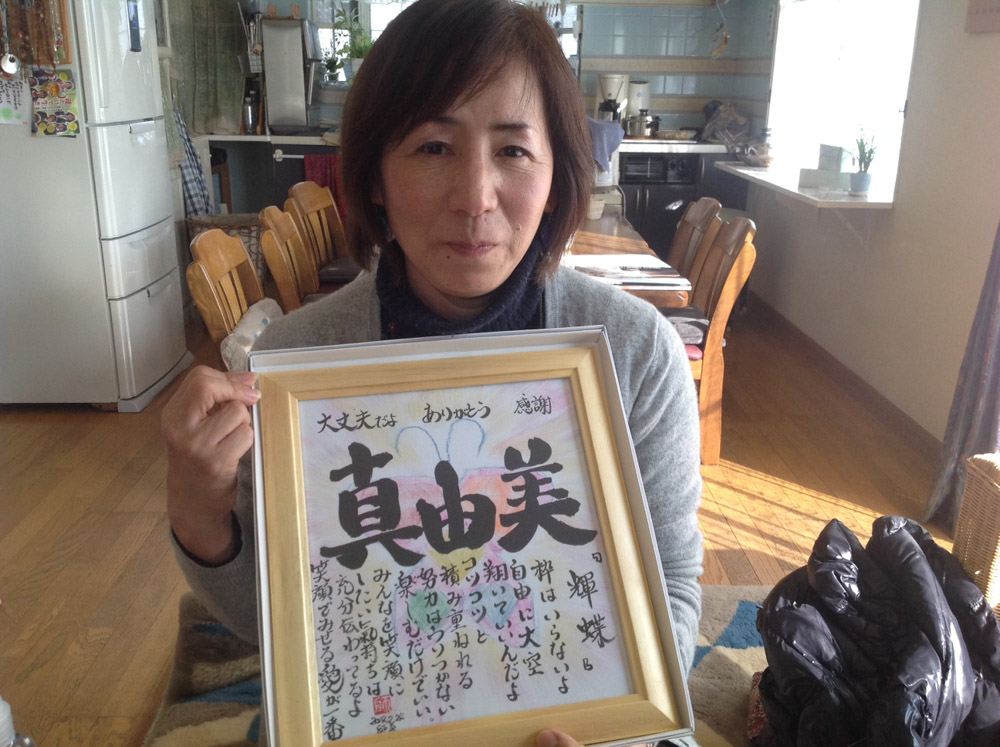 大丈夫だよ ありがとう 感謝
真由美
『輝蝶』
枠はいらないよ
自由に大空
翔いていいんだよ
コツコツと
積み重ねれる
努力はウソつかない
楽しむだけでいい
みんなを笑顔に
したい気持ちは
充分伝わってるよ
笑顔でみせる魂が一番